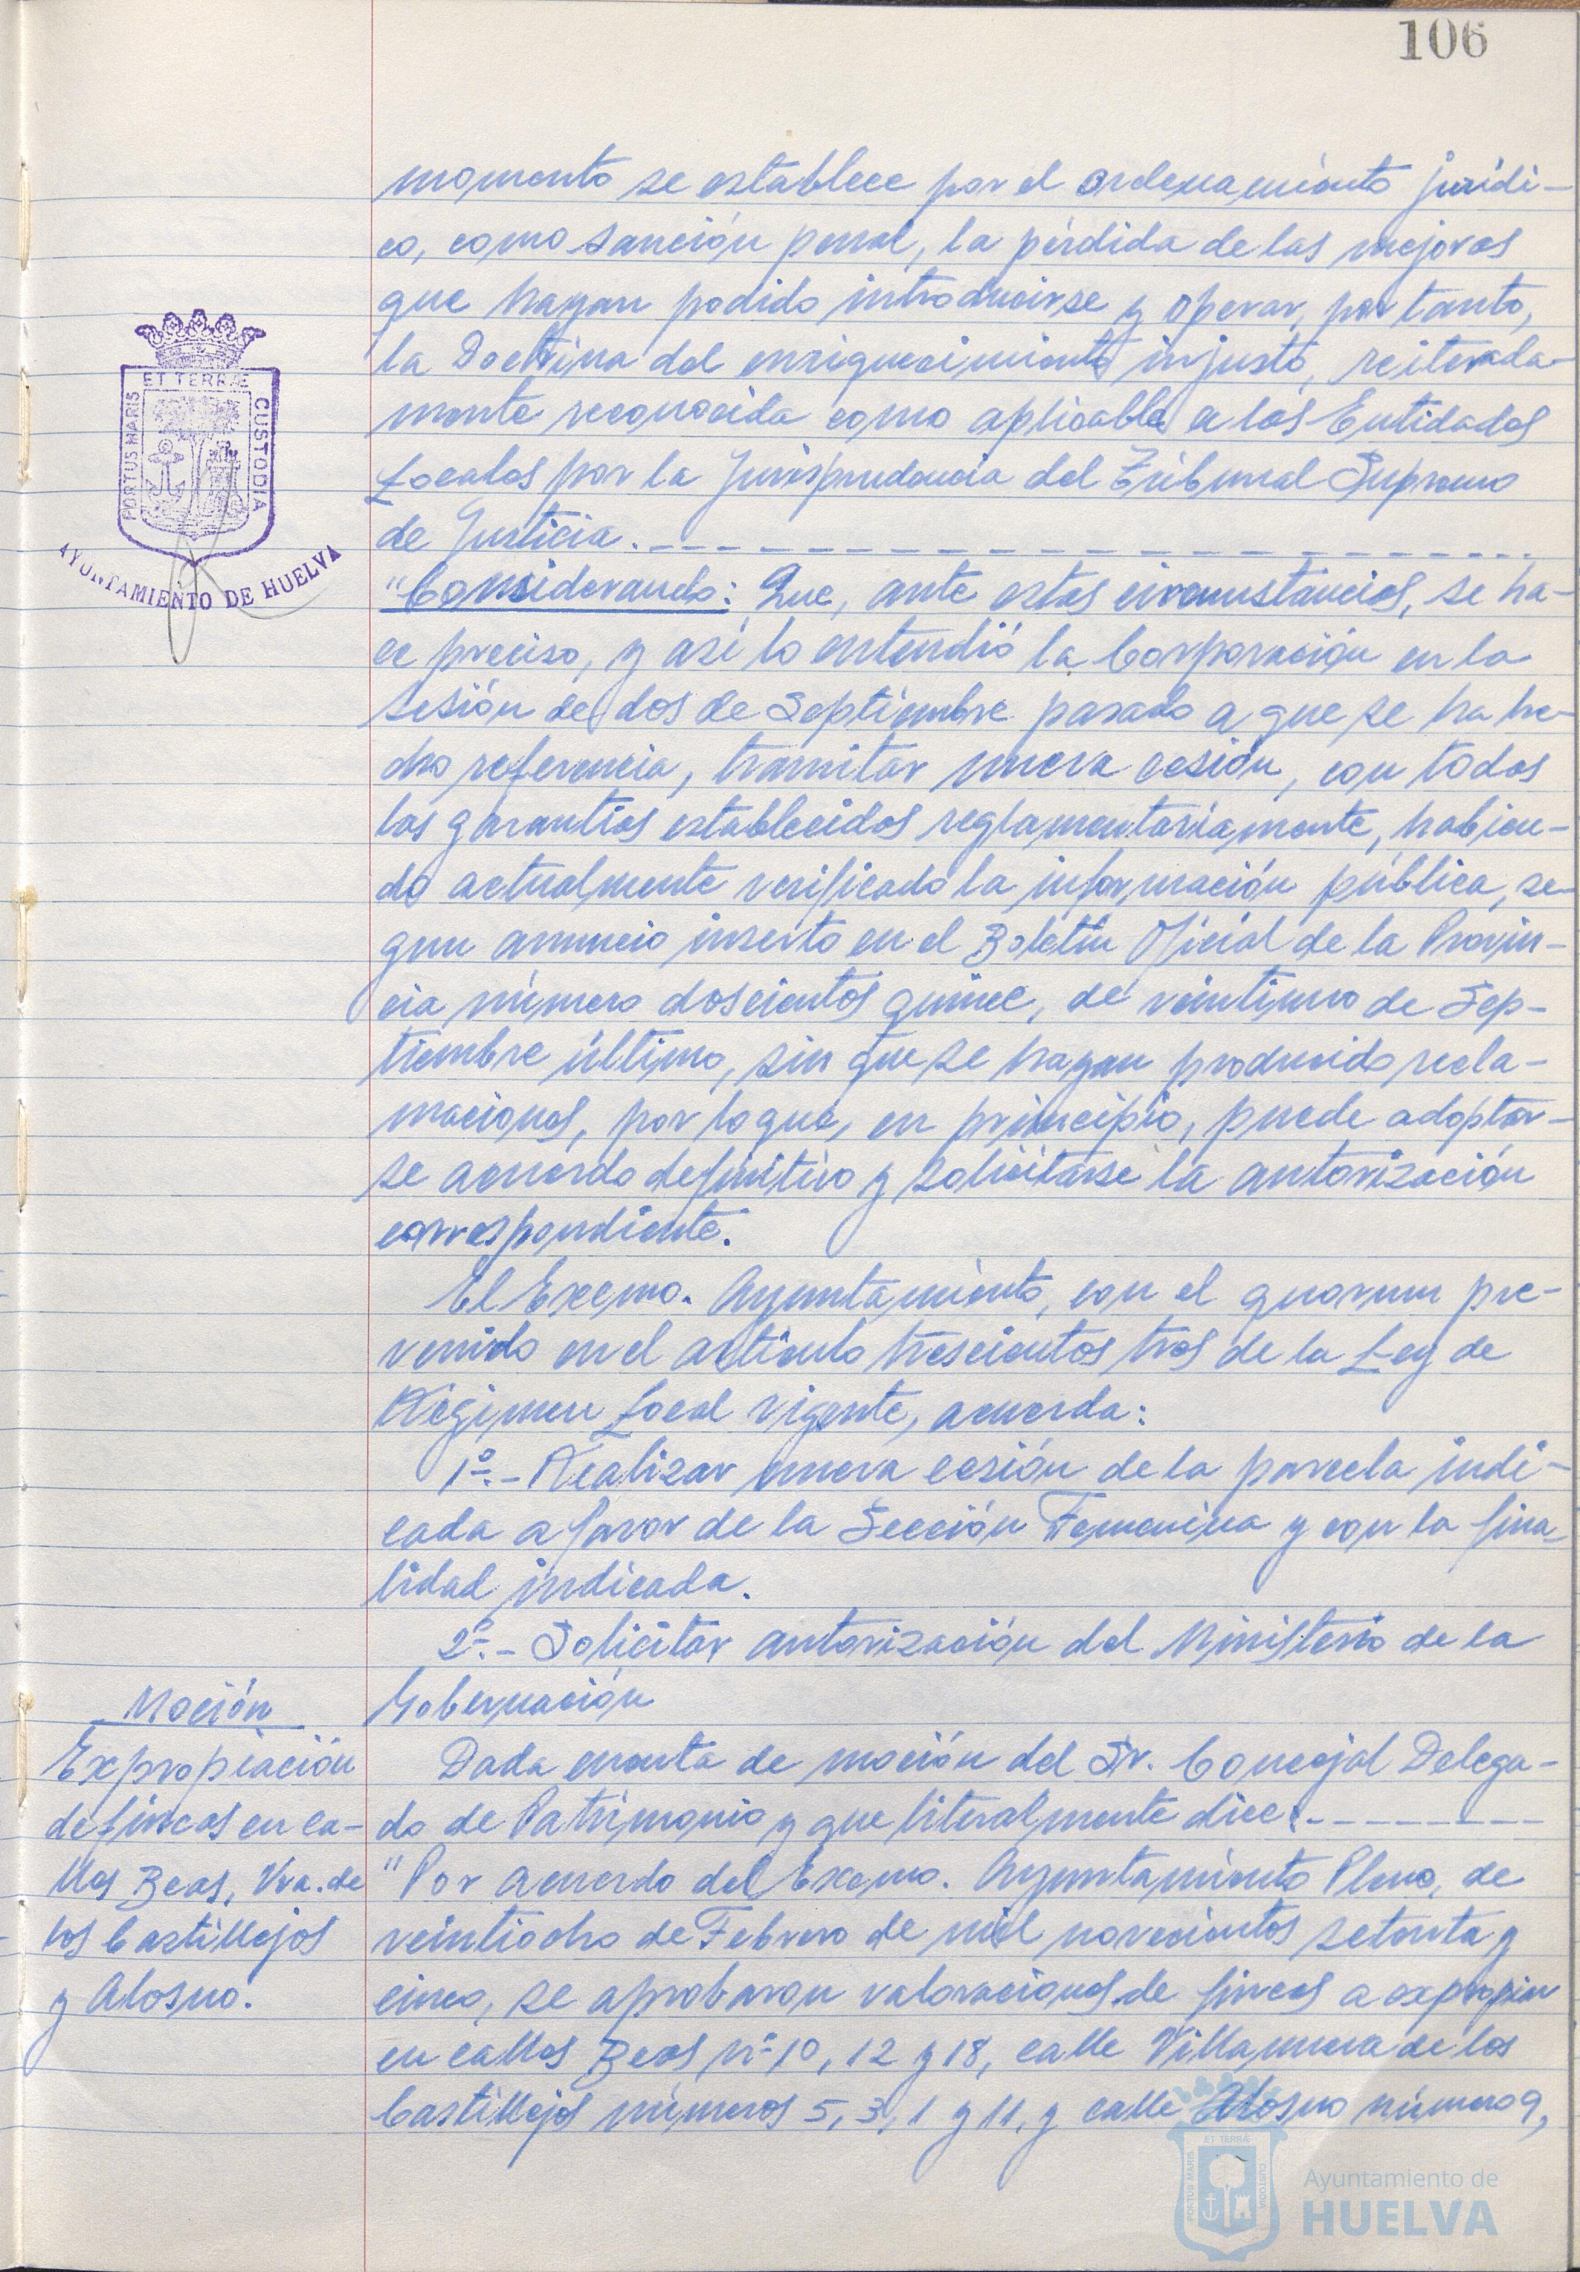 106
momento se establece por el ordenamiento jurídi-
co, como sanción penal, la pérdida de las mejoras
que hayan podido introducirse y operar, por tanto,
la Doctrina del enriquecimiento injusto, reiterada-
mente reconocida como aplicable a las Entidades
Locales por la Jurisprudencia del Tribunal Supremo
de Justicia.
"Considerando: Que, ante estas circunstancias, se ha-
ce preciso, y así lo entendió la Corporación en la
sesión de dos de Septiembre pasado a que se ha he-
cho referencia, tramitar nueva cesión, con todas
las garantías establecidas reglamentariamente, habien-
do actualmente verificado la información pública, se-
gun anuncio inserto en el Boletín Oficial de la Provin-
cia número doscientos quince, de veintiuno de Sep-
tiembre último, sin que se hayan producido recla-
maciones, por lo que, en principio, puede adoptar-
se acuerdo definitivo y solicitarse la autorización
correspondiente.
El Excmo. Ayuntamiento, con el quorum pre-
venido en el artículo trescientos tres de la Ley de
Régimen Local vigente, acuerda:
1º.- Realizar nueva cesión de la parcela indi-
cada a favor de la Sección Femenina y con la fina-
lidad indicada.
2º.- Solicitar autorización del Ministerio de la
Gobernación
Moción
Expropiación
de fincas en ca-
lles Beas, Vva. de
los Castillejos
y Alosno.
Dada cuenta de moción del Sr. Concejal Delega-
do de Patrimonio y que literalmente dice:
"Por acuerdo del Excmo. Ayuntamiento Pleno, de
veintiocho de Febrero de mil novecientos setenta y
cinco, se aprobaron valoraciones de fincas a expropiar
en calles Beas nº 10, 12 y 18, calle Villanueva de los
Castillejos números 5, 3, 1 y 11, y calle Alosno número 9,
PORTUS MARIS ET TERRÆ CUSTODIA
AYUNTAMIENTO DE HUELVA
PORTUS MARIS ET TERRÆ CUSTODIA
Ayuntamiento de
HUELVA